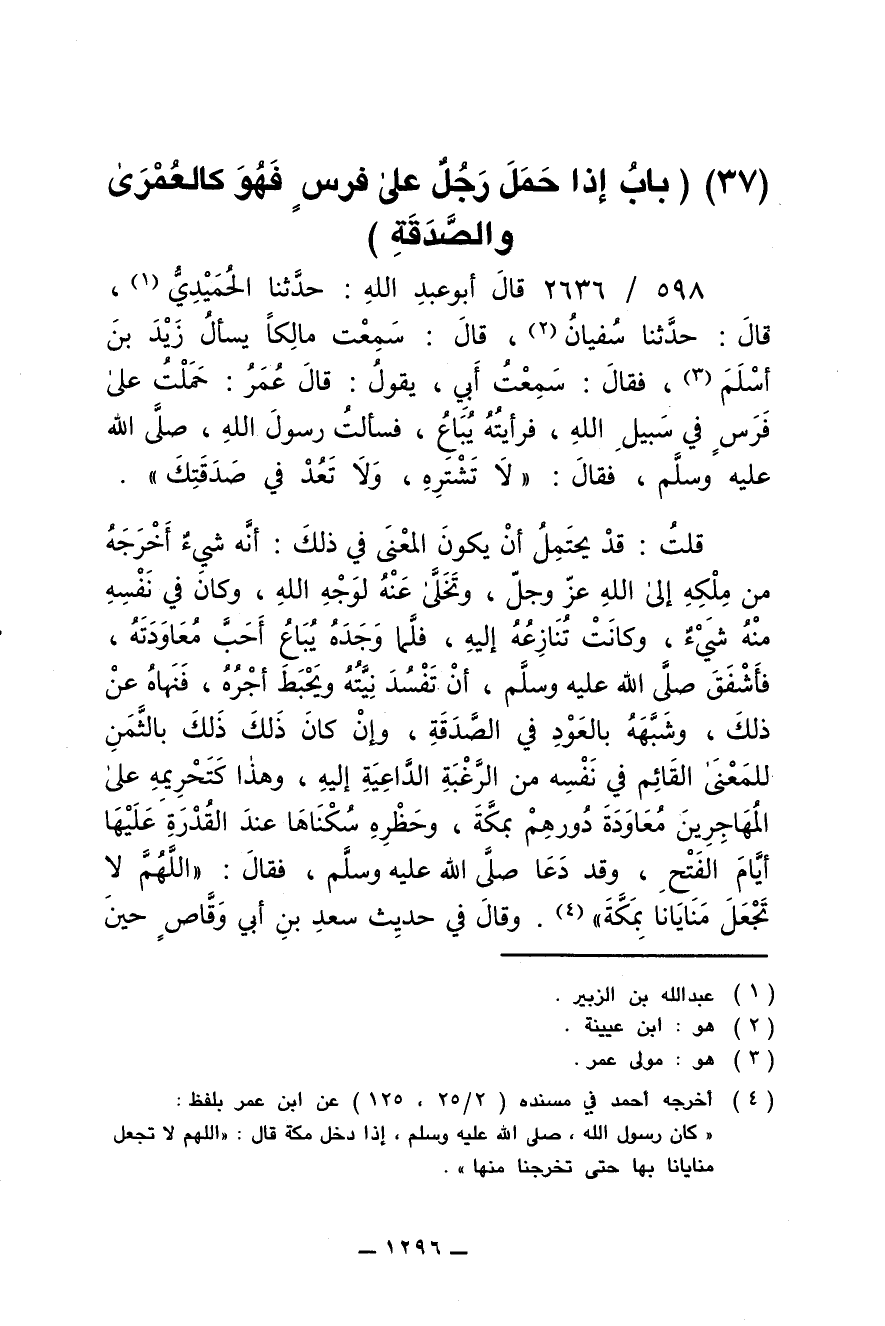 (٣٧) ( بابُ إذا حَمَلَ رَجُلٌ علىٰ فرسٍ فَهُوَ كالعُمْرَىٰ
والصَّدَقَةِ )
٥٩٨ / ٢٦٣٦ قالَ أبوعبدِ اللهِ : حدَّثنا الحُمَيْدِيُّ (١) ،
قالَ : حدَّثنا سُفيانُ (٢) ، قالَ : سَمِعْت مالِكاً يسألُ زَيْدَ بنَ
أسْلَمَ (٣) ، فقالَ : سَمِعْتُ أَبي ، يقولُ : قالَ عُمَرُ : حَمَلْتُ علىٰ
فَرَسٍ في سَبيلِ اللهِ ، فرأيتُهُ يُبَاعُ ، فسألتُ رسولَ اللهِ ، صلَّى الله
عليه وسلَّم ، فقالَ : « لَا تَشْتَرِهِ ، وَلَا تَعُدْ في صَدَقَتِكَ » .
قلتُ : قدْ يحتَمِلُ أنْ يكونَ المعْنَى في ذلكَ : أنَّه شيءٌ أَخْرَجَهُ
من مِلْكِهِ إلىٰ اللهِ عزّ وجلّ ، وتَخَلَّىٰ عَنْهُ لوَجْهِ اللهِ ، وكانَ في نَفْسِهِ
منْهُ شَيْءٌ ، وكانَتْ تُنَازِعُهُ إليهِ ، فلَّما وَجَدَهُ يُبَاعُ أَحَبَّ مُعَاوَدَتَهُ ،
فأَشْفَقَ صلَّى الله عليه وسلَّم ، أنْ تَفْسُدَ نِيَّتُهُ ويَحْبَطَ أجْرُهُ ، فَنَهاهُ عنْ
ذلكَ ، وشَبَّهَهُ بالعَوْدِ في الصَّدَقَةِ ، وإنْ كانَ ذَلكَ ذَلكَ بالثَّمَنِ
للمَعْنَىٰ القَائِم في نَفْسِه من الرَّغْبَةِ الدَّاعِيَةِ إليهِ ، وهذٰا كَتَحْرِيمِهِ علىٰ
المُهَاجِرِينَ مُعَاوَدَةَ دُورِهِمْ بمكَّةَ ، وحَظْرِهِ سُكْنَاهَا عندَ القُدْرَةِ عَلَيْهَا
أيَّامَ الفَتْحِ ، وقد دَعَا صلَّى الله عليه وسلَّم ، فقالَ : «اللَّهُمَّ لا
تَجْعَلَ مَنَايَانا بِمَكَّةَ» (٤) . وقالَ في حديِث سعدِ بنِ أبي وَقَّاصٍ حينَ
( ١ ) عبدالله بن الزبير .
( ٢ ) هو : ابن عيينة .
( ٣ ) هو : مولى عمر .
( ٤ ) أخرجه أحمد في مسنده ( ٢٥/٢ ، ١٢٥ ) عن ابن عمر بلفظ :
« كان رسول الله ، صلى الله عليه وسلم ، إذا دخل مكة قال : «اللهم لا تجعل
منايانا بها حتى تخرجنا منها » .
ــ ١٢٩٦ ــ